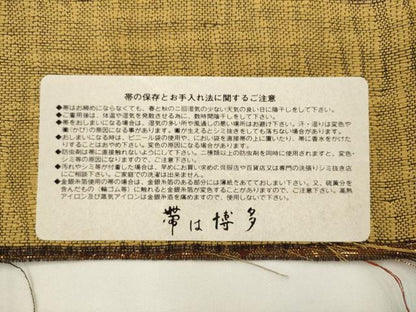 帯の保存とお手入れ法に関するご注意
◆帯はお締めにならなくても、春と秋の二回湿気の少ない天気の良い日に陰干しをして下さい。
◆ご着用後は、体温や湿気を発散させる為に、数時間陰干しをして下さい。
◆帯をおしまいになる場合は、湿気の多い所や風通しの悪い場所はお避け下さい。汗・湿りは変色や
黴(かび)の原因になる事があります。黴が生えるとシミ抜きをしても落ちない場合が有ります。
◆帯をおしまいになる時は、ビニール袋の使用や、におい袋を直接おいたり、帯に香水をかけた
りすることはおやめ下さい。変色の原因になる場合があります。
◆防虫剤は帯に直接触れないようにして下さい。二種類以上の防虫剤を同時に使用されますと、変色
シミ等の原因になりますので、ご注意下さい。
◆汚れやシミ等が付着した場合は、早めにお買い求めの呉服店や百貨店又は専門の洗張りシミ抜店
にご相談下さい。ご家庭での洗濯は出来ません。
◆金銀糸箔使用の帯の場合は、金銀糸箔のある部分には薄紙をあてておしまい下さい。又、硫黄分を
含んだもの(輪ゴム等)に触れると金銀糸箔が変色することがありますので、ご注意下さい。高熱
アイロン及び蒸気アイロンは金銀糸箔を痛めますので、使用しないで下さい。
帯は博多